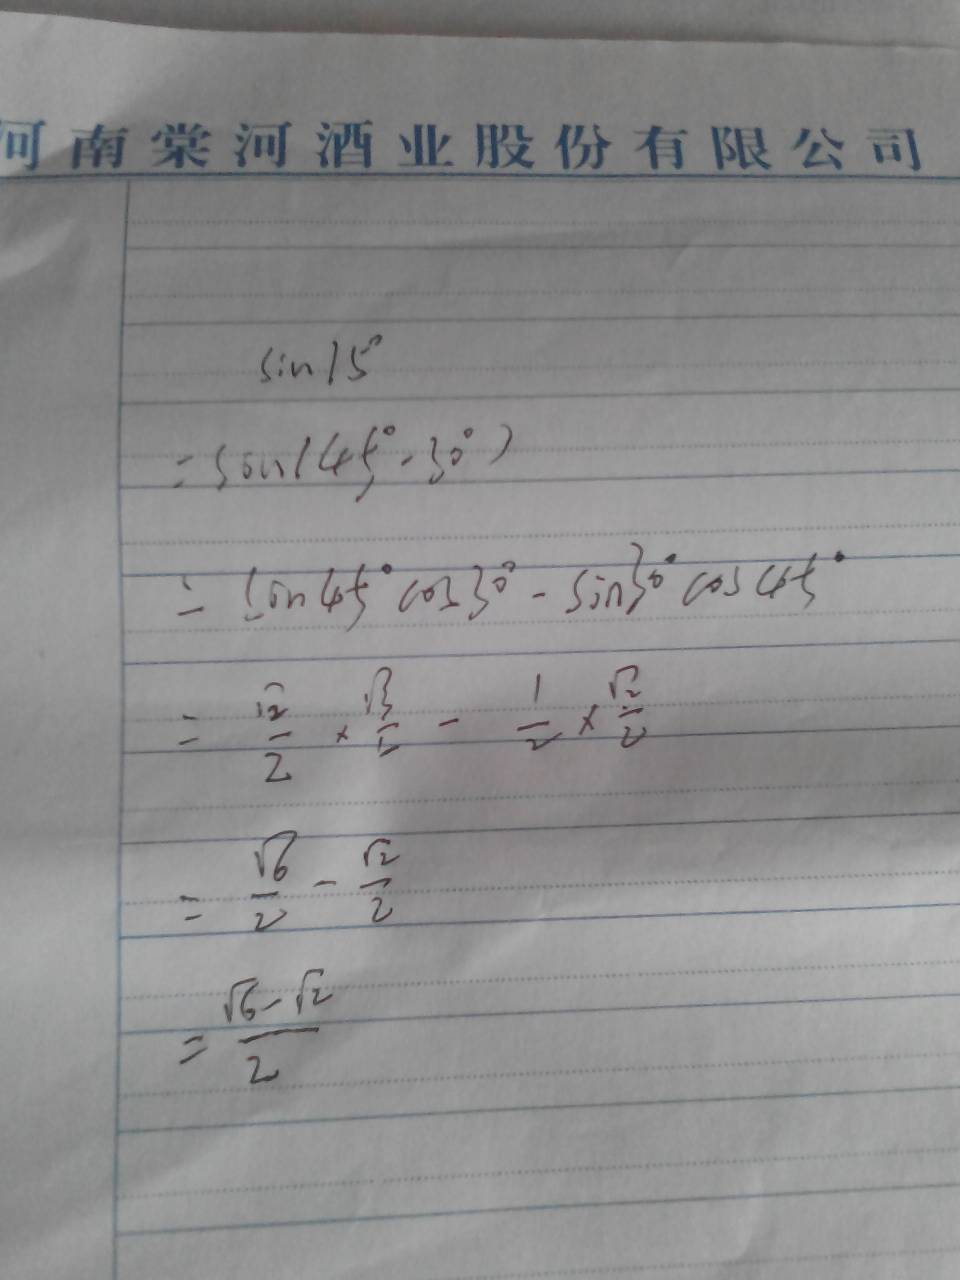 河南棠河酒业股份有限公司
sin15°
=sin(45°-30°)
= sin45°cos30°-sin30°cos45°
= √2/2 × √3/2 - 1/2 × √2/2
= √6/2 - √2/2
= (√6-√2)/2